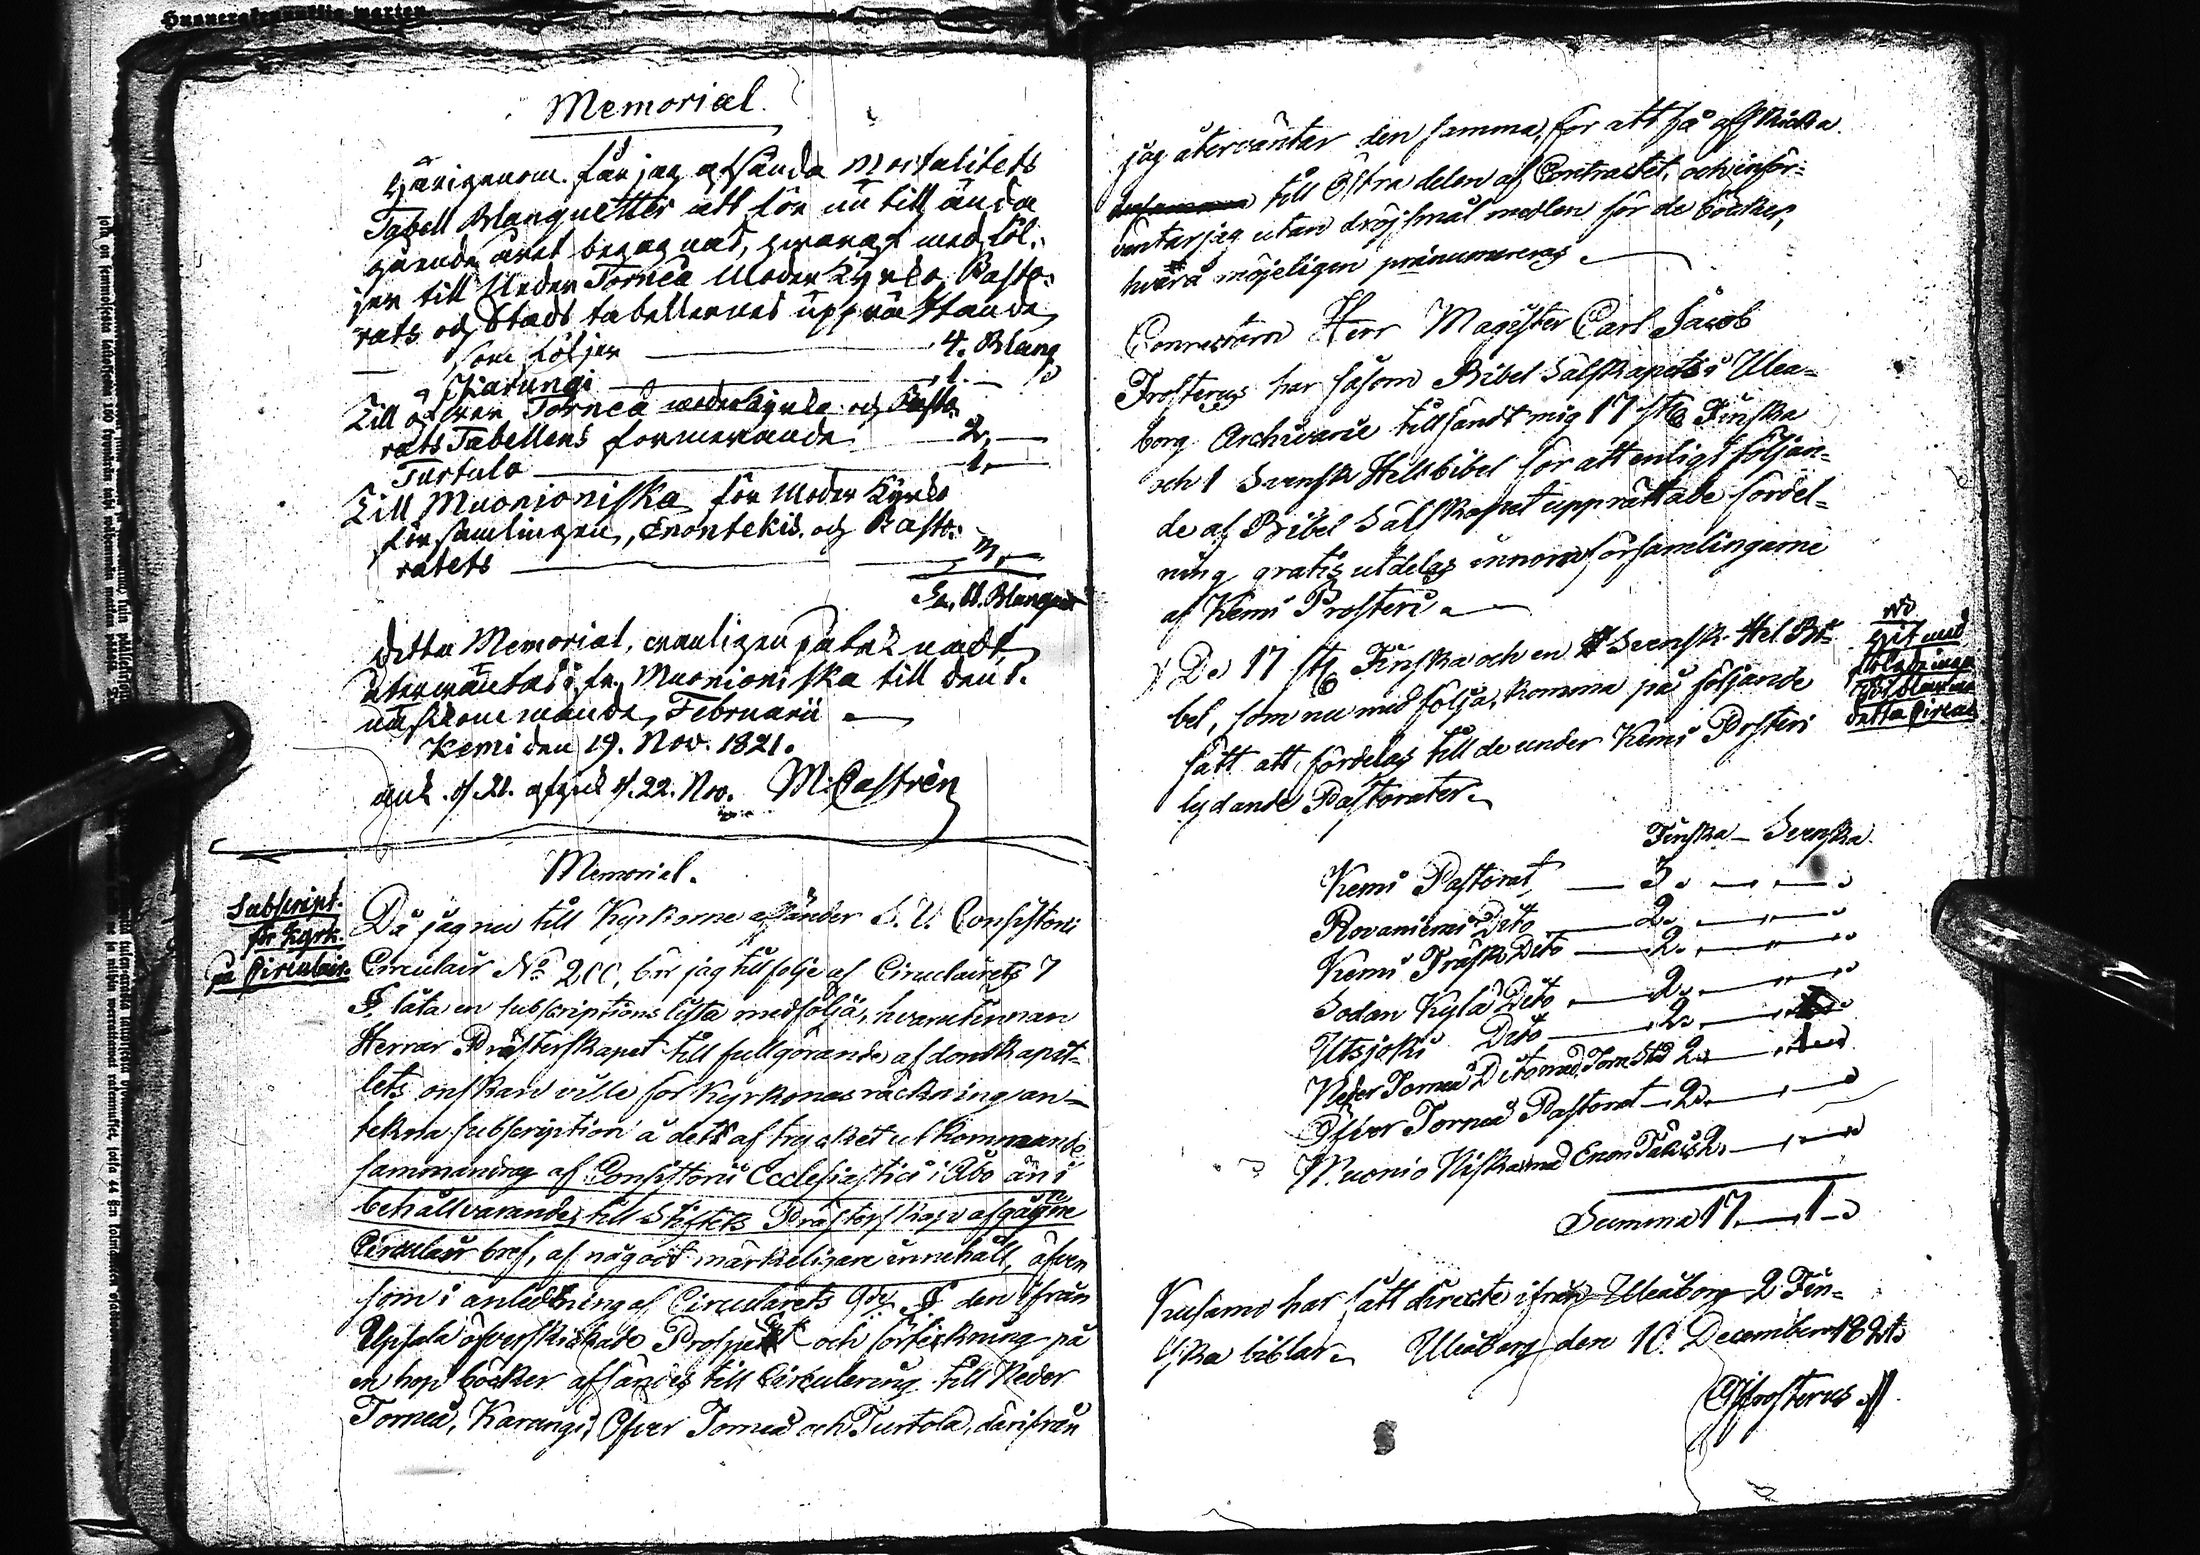 Memorial.
Härigenom får jag afsända Mortalitets
Tabell Blanquetter att för nu till ända
gående året begagnas, hvaraf medföl-
jer till Neder Torneå Moder Kyrko, Pasto-
rats och Stads tabellernes upprättande
som följer 4. Blanq
Karungi 1.
Till öfver Torneå moderkyrko och Pasto-
rats Tabellens formerande 2.
Turtula 1.
Till Muonioniska för Moder Kyrko
församlingen, Enontekis och Pasto-
ratets 3.
Sa. 11. Blanquet
Detta Memorial, vanligen påteknadt,
återväntas fr. Muonioniska till den 1.
nästkommande Februarii
Kemi den 19. Nov. 1821.
ank. d. 21. afgick d. 22. Nov. M. Castrén
Memorial.
Subscript.
för Kyrk.
på Circulair.
Då jag nu till Kyrkorne afsänder S. V. Consistorii
Circulair No 200, bör jag till följe af Circulairets 7
§. låta en subscriptions lista medfölja, hvarutinnan
Herrar Prästerskapet till fullgörande af domkapit-
lets önskan ville för Kyrkornas räckning an-
tekna subscription å dets af trycket utkommande
sammandrag af Consistorii Ecclesiastici i Åbo än i
behållvarande, till Stiftets Prästerskap afgågne
Circulair bref, af något märkeligare innehåll, äfven
som i anledning af Circulairets 9de §. den ifrån
Upsala öfverskickade Prospect och förteckning på
en hop böcker afsändes till Circulering till Neder
Torneå, Karungi, Öfver Torneå och Turtola, därifrån
jag återväntar den samma, för att få afskicka
till Östra delen af Contractet, och inför-
väntar jag utan dröjsmål medlen för de böcker,
hvarå möjeligen prænumereras.
Conrectorn Herr Magister Carl Jacob
Frosterus har såsom Bibel Sälskapets i Ulea-
borg Archivarie tillsändt mig 17 st. Finska
och 1 Svensk Hel bibel för att enligt följan-
de af Bibel Sälskapet upprättade fördel-
ning gratis utdelas innom församlingarne
af Kemi Prosteri.
De 17 st. Finska och en Svensk Hel Bi-
bel, som nu medfölja, komma på följande
sätt att fördelas till de under Kemi Prosteri
lydande Pastorater.
detta Circul
Finska Svenska
Kemi Pastorat 3.
Rovaniemi Dito 2.
Kemi Träsk Dito 2.
Sodan Kylä Dito 2.
Utsjoki Dito 2.
Neder Torneå Dito med Torn. Stad 2. 1
Öfver Torneå Pastorat 2.
Muonio Niska med Enon Täkis 2.
Summa 17. 1
Kusamo har fått directe ifrån Uleåborg 2 Fin-
ska biblar. Uleåborg den 10. December 1821.
CJFrosterus